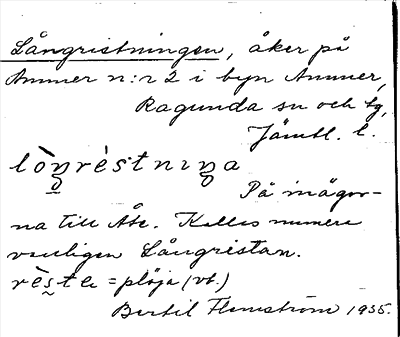 Långristningen, åker på
Ammer n:r 2 i byn Ammer,
Ragunda sn och tg,
Jämtl. l.
lòŋrèstnɩŋa
På inägor-
na till Åse. Kallas numera
vanligen Långristan.
rèste = plöja (vb.)
Bertil Flemström 1935.